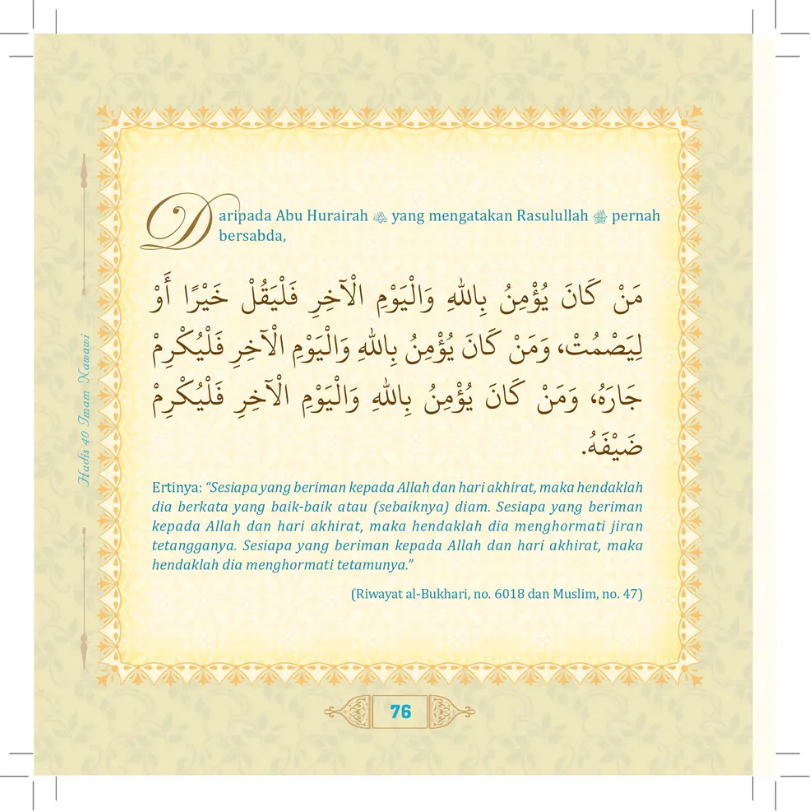 Daripada Abu Hurairah ؓ yang mengatakan Rasulullah ﷺ pernah
bersabda,
مَنْ كَانَ يُؤْمِنُ بِاللهِ وَالْيَوْمِ الْآخِرِ فَلْيَقُلْ خَيْرًا أَوْ
لِيَصْمُتْ، وَمَنْ كَانَ يُؤْمِنُ بِاللهِ وَالْيَوْمِ الْآخِرِ فَلْيُكْرِمْ
جَارَهُ، وَمَنْ كَانَ يُؤْمِنُ بِاللهِ وَالْيَوْمِ الْآخِرِ فَلْيُكْرِمْ
ضَيْفَهُ.
Ertinya: “Sesiapa yang beriman kepada Allah dan hari akhirat, maka hendaklah
dia berkata yang baik-baik atau (sebaiknya) diam. Sesiapa yang beriman
kepada Allah dan hari akhirat, maka hendaklah dia menghormati jiran
tetangganya. Sesiapa yang beriman kepada Allah dan hari akhirat, maka
hendaklah dia menghormati tetamunya.”
(Riwayat al-Bukhari, no. 6018 dan Muslim, no. 47)
Hadis 40 Imam Nawawi
76